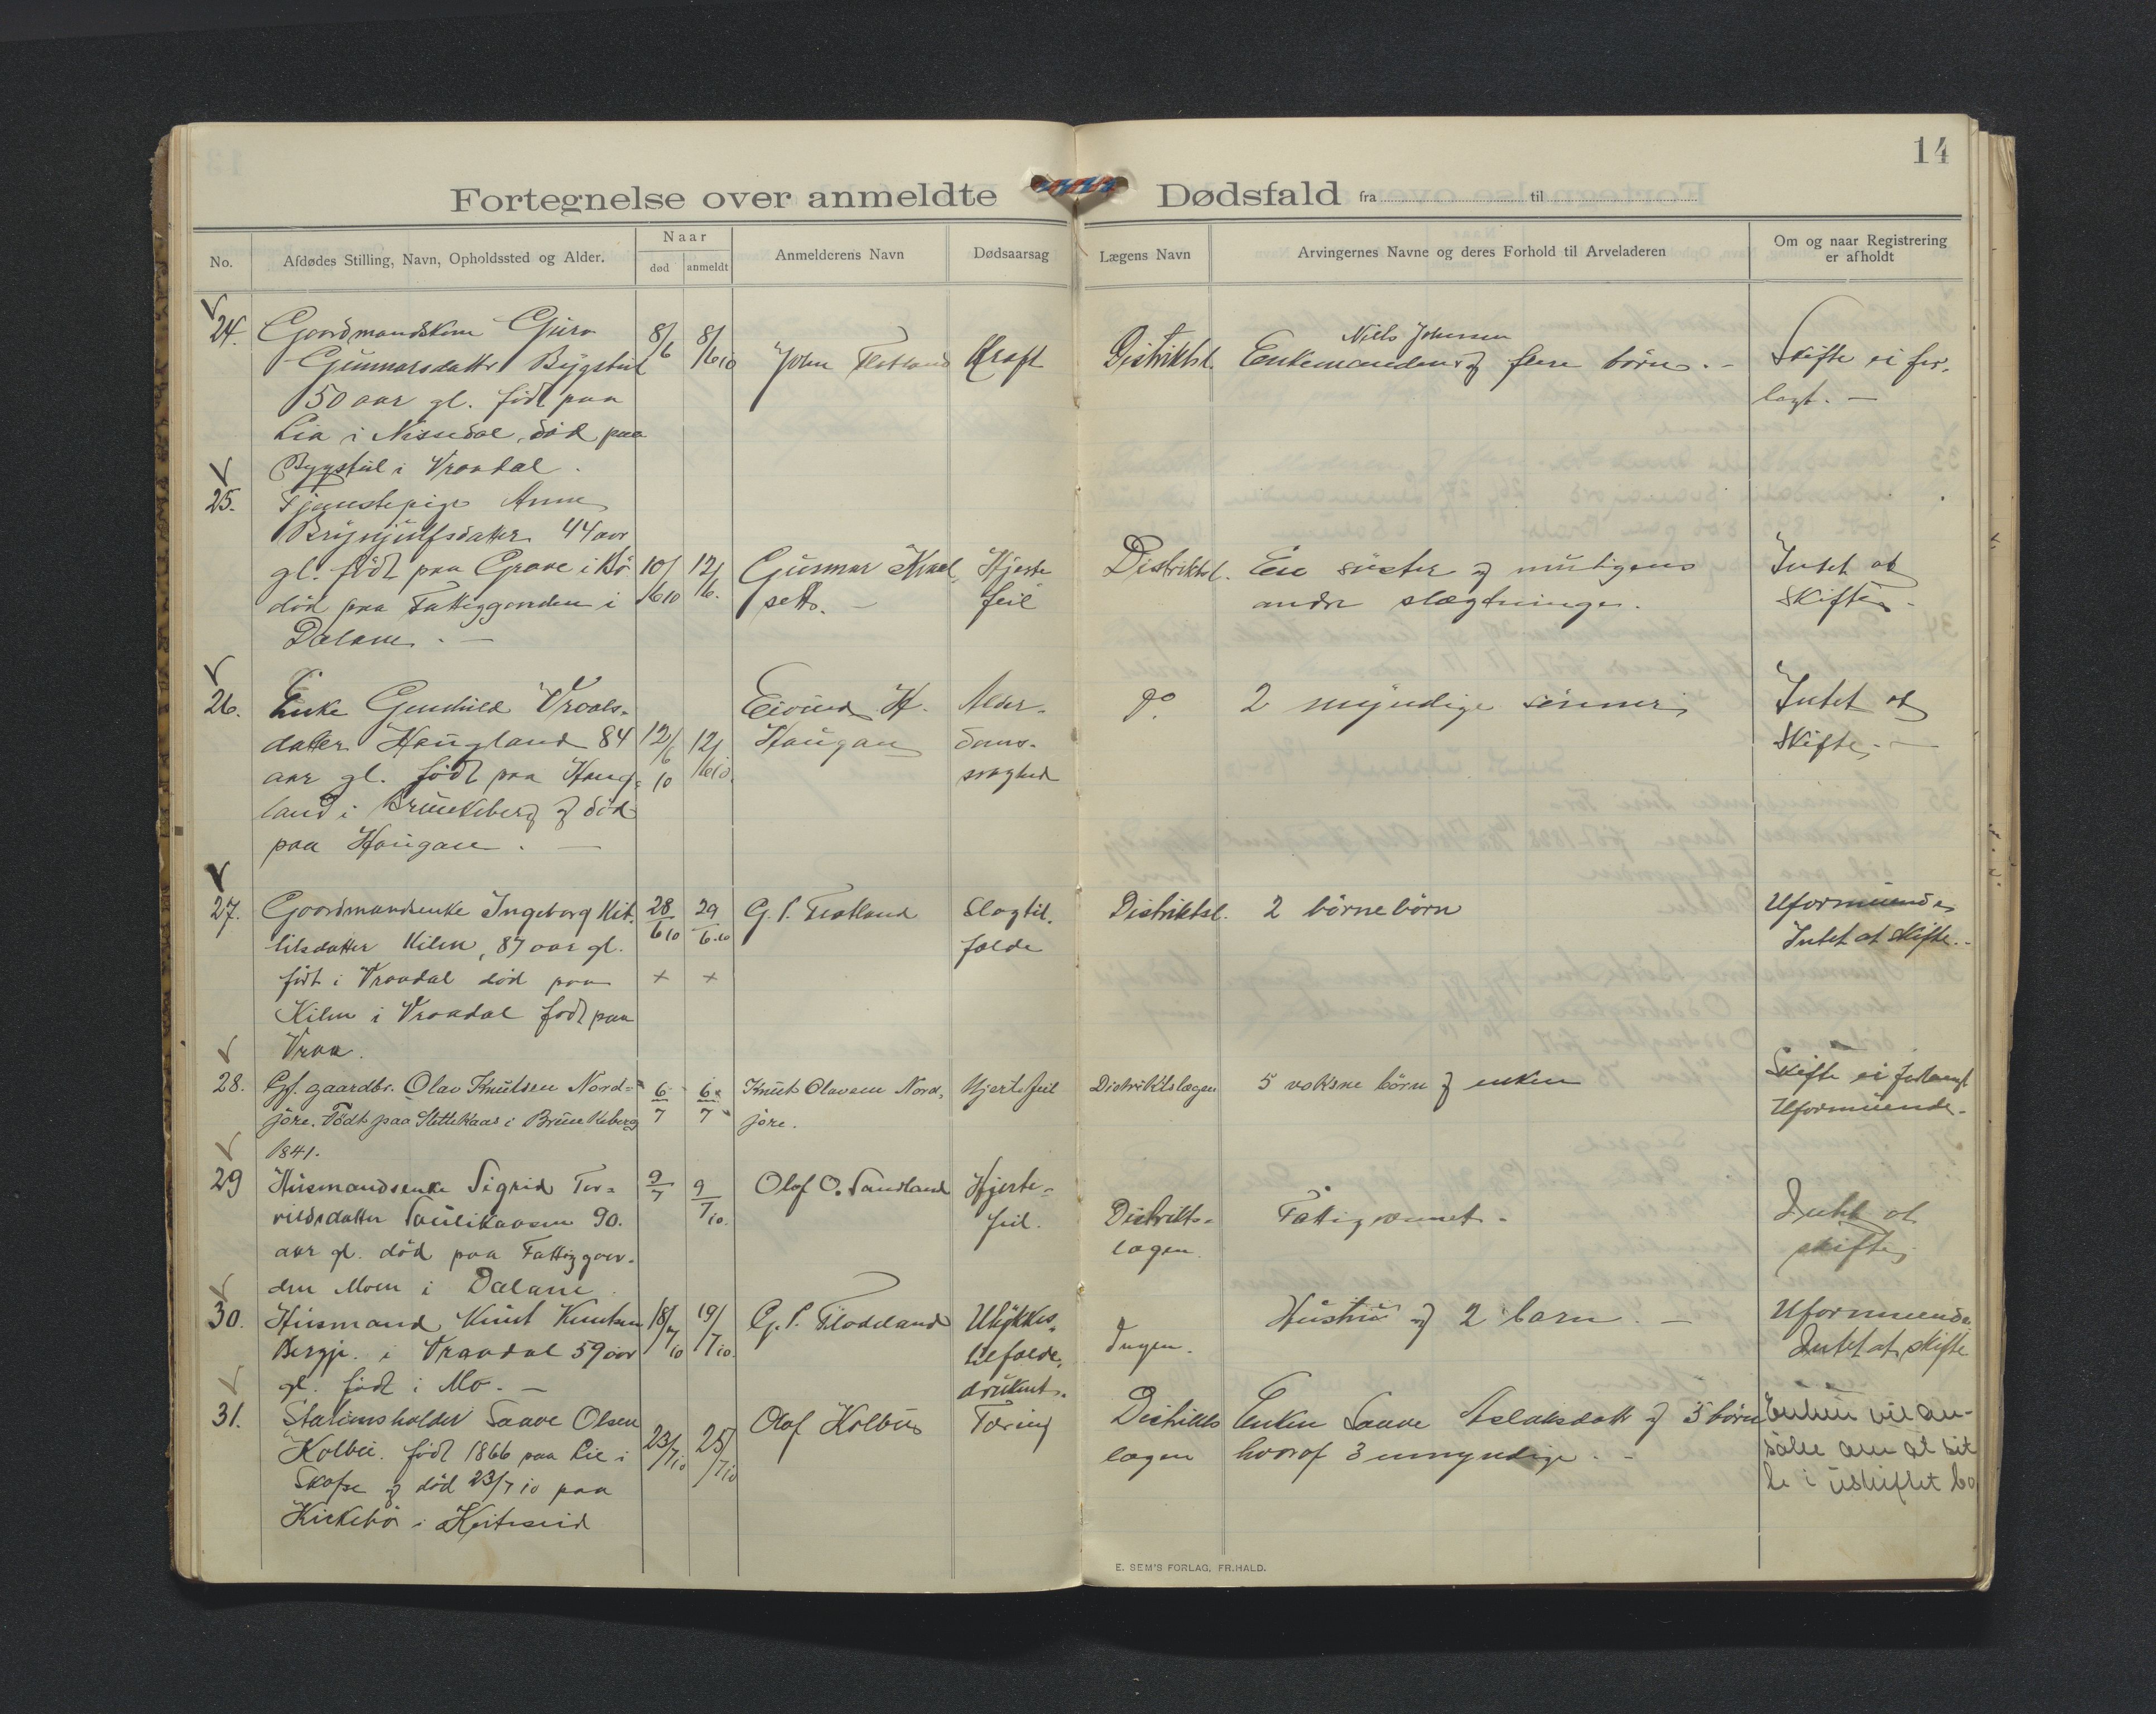 14
Fortegnelse over anmeldte Dødsfald fra til
No.
Afdødes Stilling, Navn, Opholdssted og Alder.
Naar
død
anmeldt
Anmelderens Navn
Dødsaarsag
Lægens Navn
Arvingernes Navne og deres Forhold til Arveladeren
Om og naar Registrering
er afholdt
24. Gaardmandskone Guro
Gunnarsdatter Bygstul
50 aar gl. født paa
Lia i Nissedal, død paa
Bygstul i Vraadal.
8/6
8/6 10
John Flatland
Kræft
Distriktsl.
Niels Johnsen
Enkemanden og flere børn. -
Skifte ei for-
langt. -
25. Tjenestepige Anne
Brynjulfsdatter 44 aar
gl. født paa Grave i Bø
død paa Fattiggaarden i
Dalane. -
10/6 10
12/6.
Gunnar
Hjerte
feil
Distriktsl.
En søster og muligens
andre slægtninger.
Intet at
skifte.
26. Enke Gunhild Vraals-
datter Haugland 84
aar gl. født paa Haug-
land i Brunkeberg og død
paa Haugan. -
12/6
10
12/6 10.
Eivind H.
Haugan
Alder-
doms-
svaghed
do.
2 myndige sønner
Intet at
skifte. -
27. Gaardmandsenke Ingeborg Kit-
tilsdatter Kilen, 87 aar gl.
født i Vraadal død paa
Kilen i Vraadal født paa
Vraa.
28/6 10
+
29/6.10
+
G. S. Flatland
Slagtil-
fælde
Distriktsl.
2 børnebørn
Uformuende
Intet at skifte. -
28. Gf. gaardbr. Olav Knutsen Nord-
jore. Født paa Slettekaas i Brunkeberg
1841.
6/7
6/7
Knut Olavsen Nord-
jore.
Hjertefeil
Distriktslægen
5 voksne børn og enken
Skifte ei forlangt
Uformuende.
29 Husmandsenke Sigrid Tor-
vildsdatter 90.
aar gl. død paa Fattiggaar-
den Moen i Dalane
9/7
9/7 10.
Olaf O. Sandland
Hjerte-
feil.
Distrikts-
lægen.
Fattigvæsenet.
Intet at
skifte
30. Husmand Knut Knutsen
Berge. i Vraadal 59 aar
gl. født i Mo. -
18/7 10
19/7 10.
G. S. Flatland
Ulykkes-
tilfælde,
druknet.
Ingen.
Hustru og 2 barn. -
Uformuende.
Intet at skifte
31. Stationsholder Saave Olsen
født 1866 paa Lie i
Skafse og død 23/7 10 paa
Kirkebø i Kviteseid
23/7 10
25/7 10
Olaf
Tæring
Distrikts
lægen
Enken Saave Aslaksdatt og 5 børn
hvoraf 3 umyndige. -
Enken vil an-
søke om at sit
te i uskiftet bo
E. SEM'S FORLAG, FR.HALD.